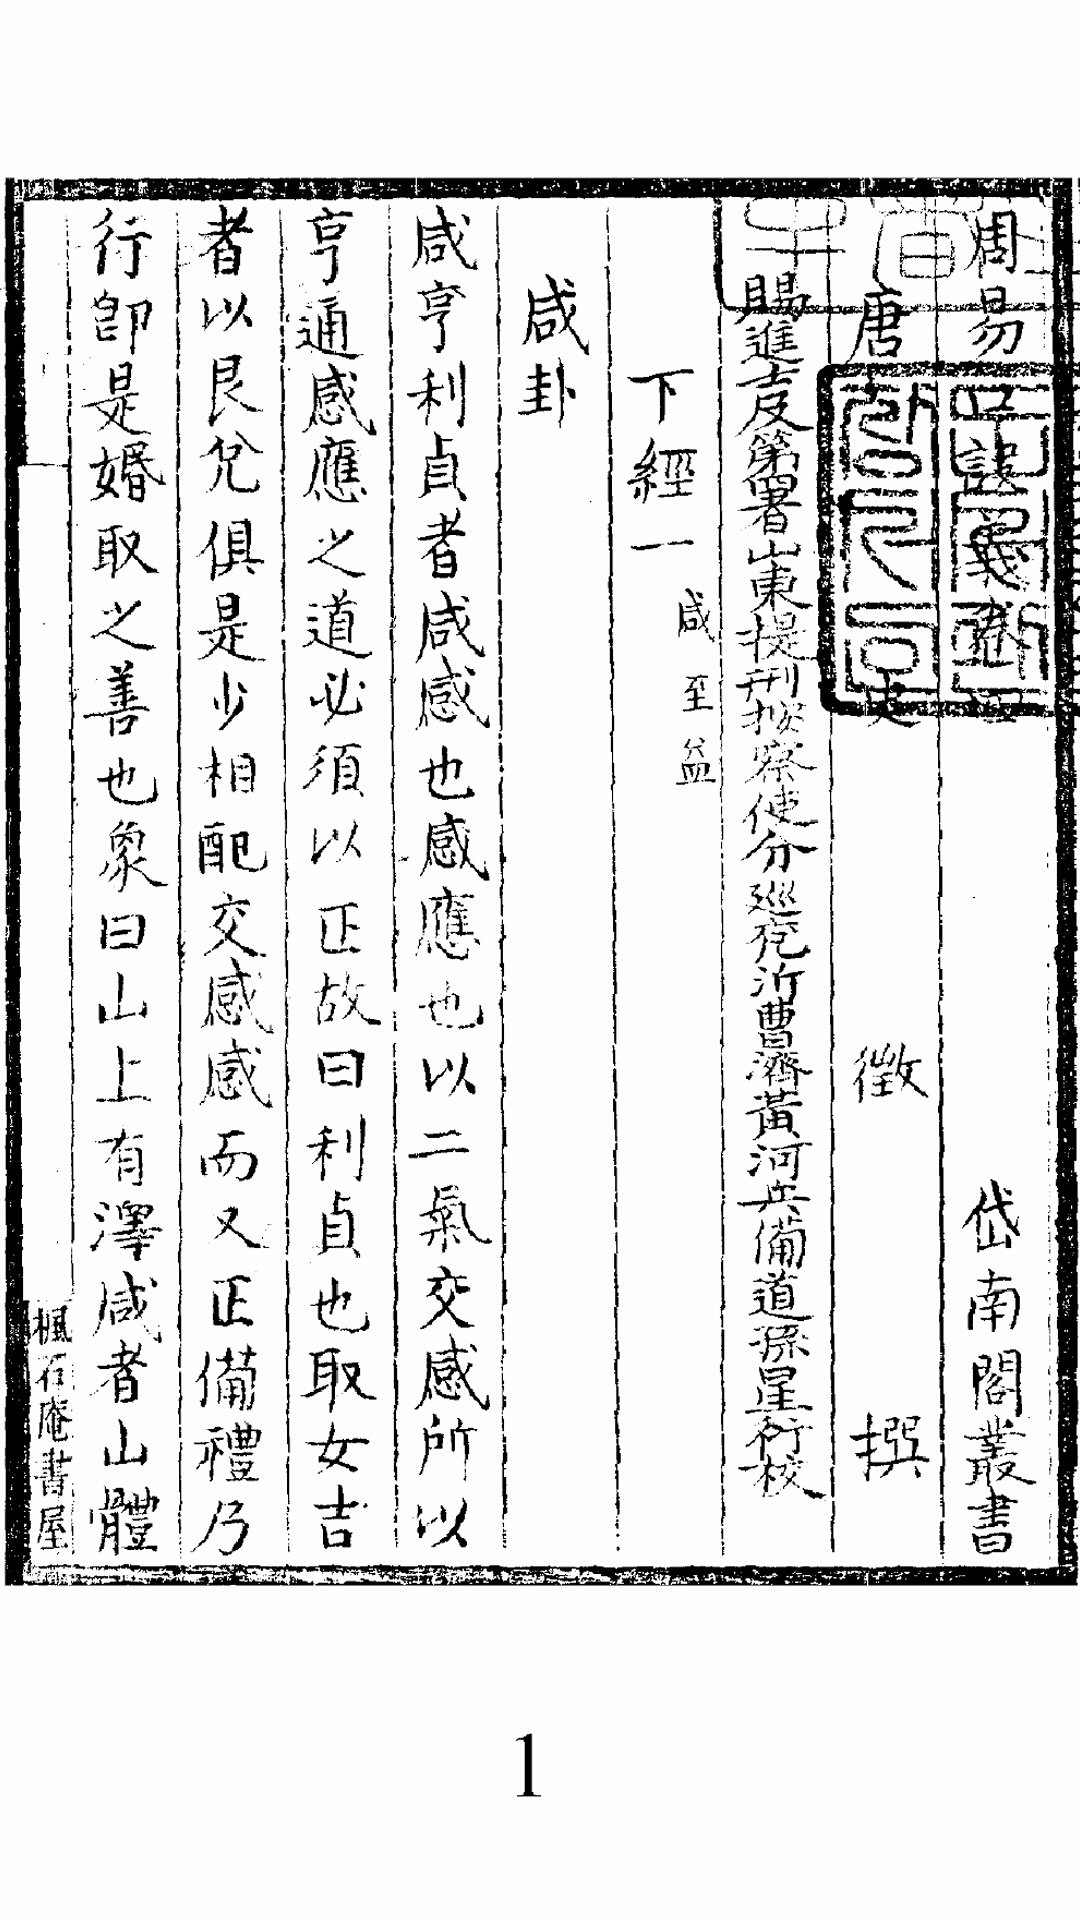 周易口訣義卷四 岱南閣叢書
唐 史 徵 撰
賜進士及第署山東提刑按察使分廵兗沂曹濟黃河兵備道孫星衍校
下經一 咸至益
咸卦
咸亨利貞者咸感也感應也以二氣交感所以
亨通感應之道必須以正故曰利貞也取女吉
者以艮兌俱是少相配交感感而又正備禮乃
行卽是婚取之善也象曰山上有澤咸者山體
楓石庵書屋
1